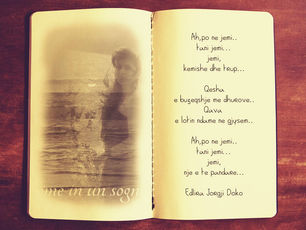 me in un sogn
Ah,po ne jemi..
tani jemi...
jemi,
kemishe dhe trup...
Qesha
e buzeqeshje me dhurove..
Qava
e lotin ndame ne gjysem..
Ah,po ne jemi..
tani jemi...
jemi,
nje e te pandare...
Edlira Jorgji Doko